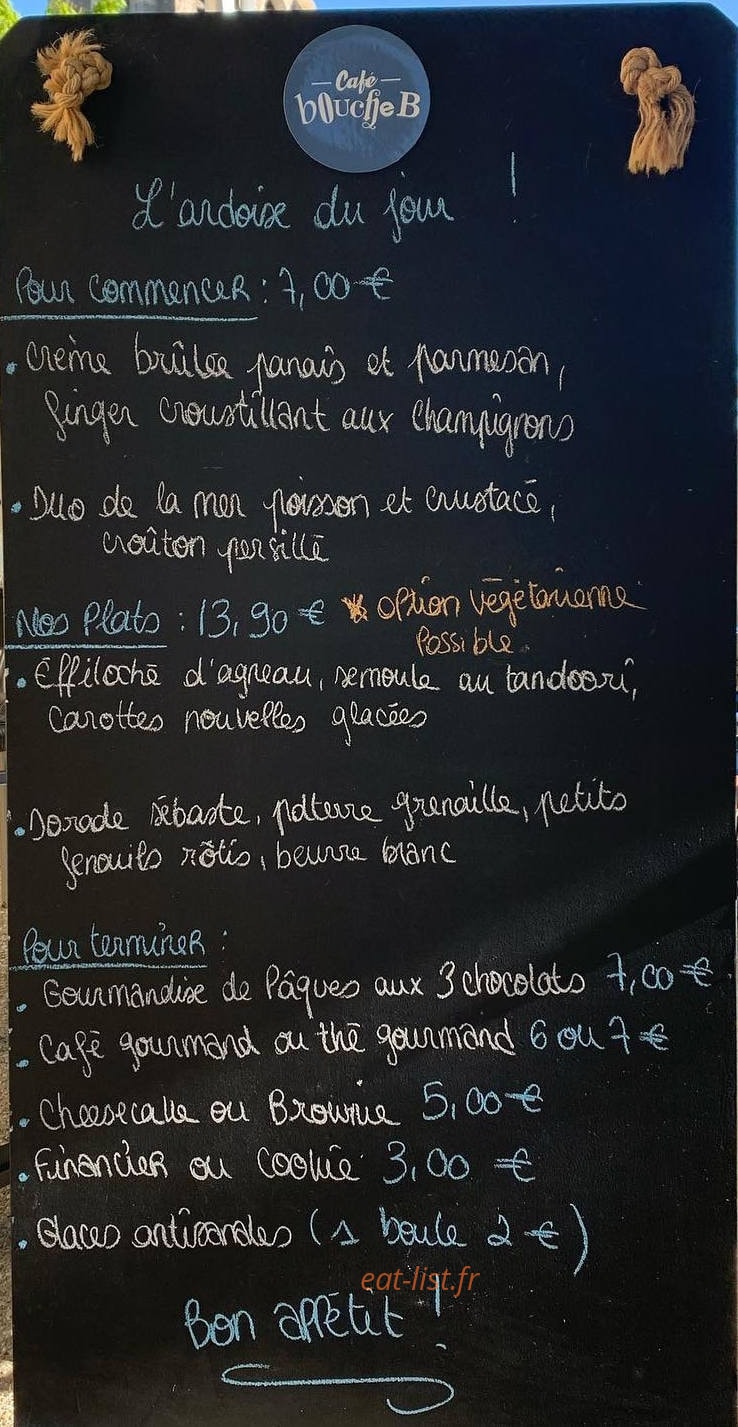 Café
bOucheB
L'ardoise du jour !
Pour commencer : 7,00 €
• Crème brûlée panais et parmesan,
finger croustillant aux champignons
• Duo de la mer poisson et crustacé,
croûton persillé
Nos Plats : 13,90 € * option végétarienne
Possible
• Effiloché d'agneau, semoule au tandoori,
carottes nouvelles glacées
• Dorade sébaste, polteure grenaille, petits
fenouils rôtis, beurre blanc
Pour terminer :
• Gourmandise de Pâques aux 3 chocolats 7,00 €
• Café gourmand ou thé gourmand 6 ou 7 €
• Cheesecake ou Brownie 5,00 €
• Financier ou Cookie 3,00 €
• Glaces artisanales (1 boule 2 €)
eat-list.fr
Bon appétit !